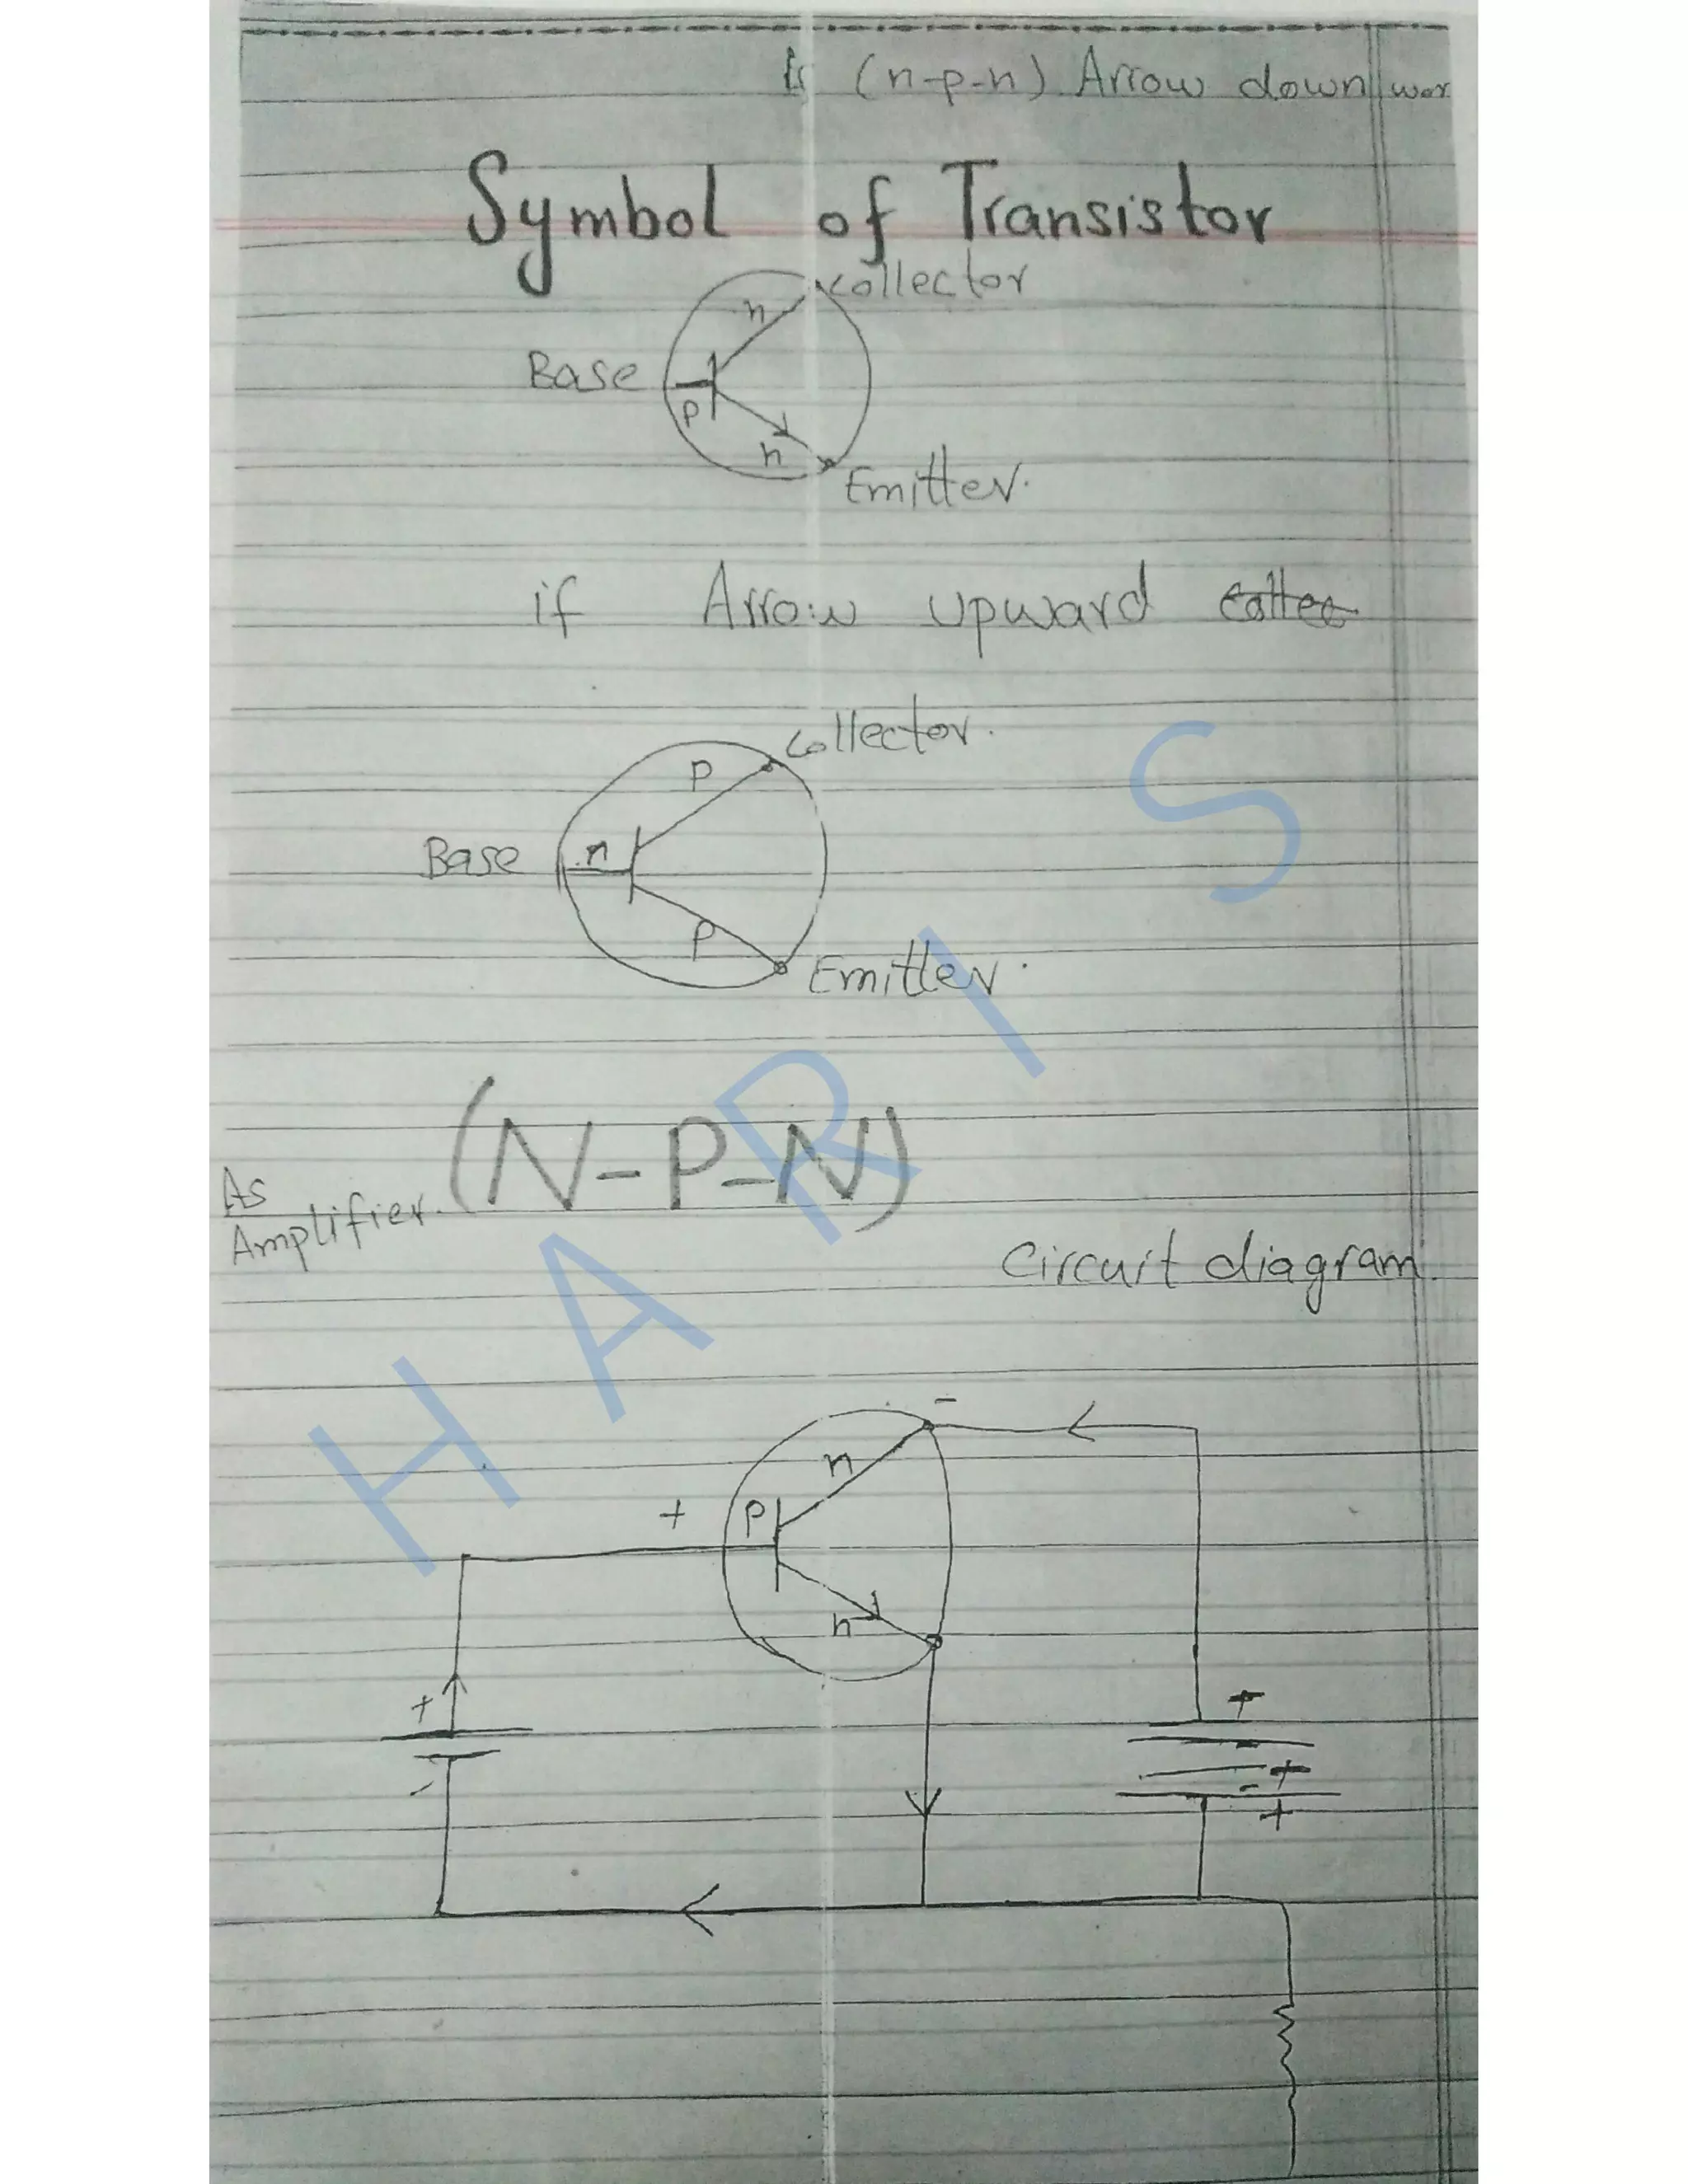 (n-p-n) Arrow down
Symbol of Transistor
Collector
n
Base
p
n
Emitter.
if Arrow upward
Collector.
p
Base n
p
Emitter.
As Amplifier. (N-P-N)
Circuit diagram.
-
n
+ p
n
+
+
-
-
+
-
+
HARIS